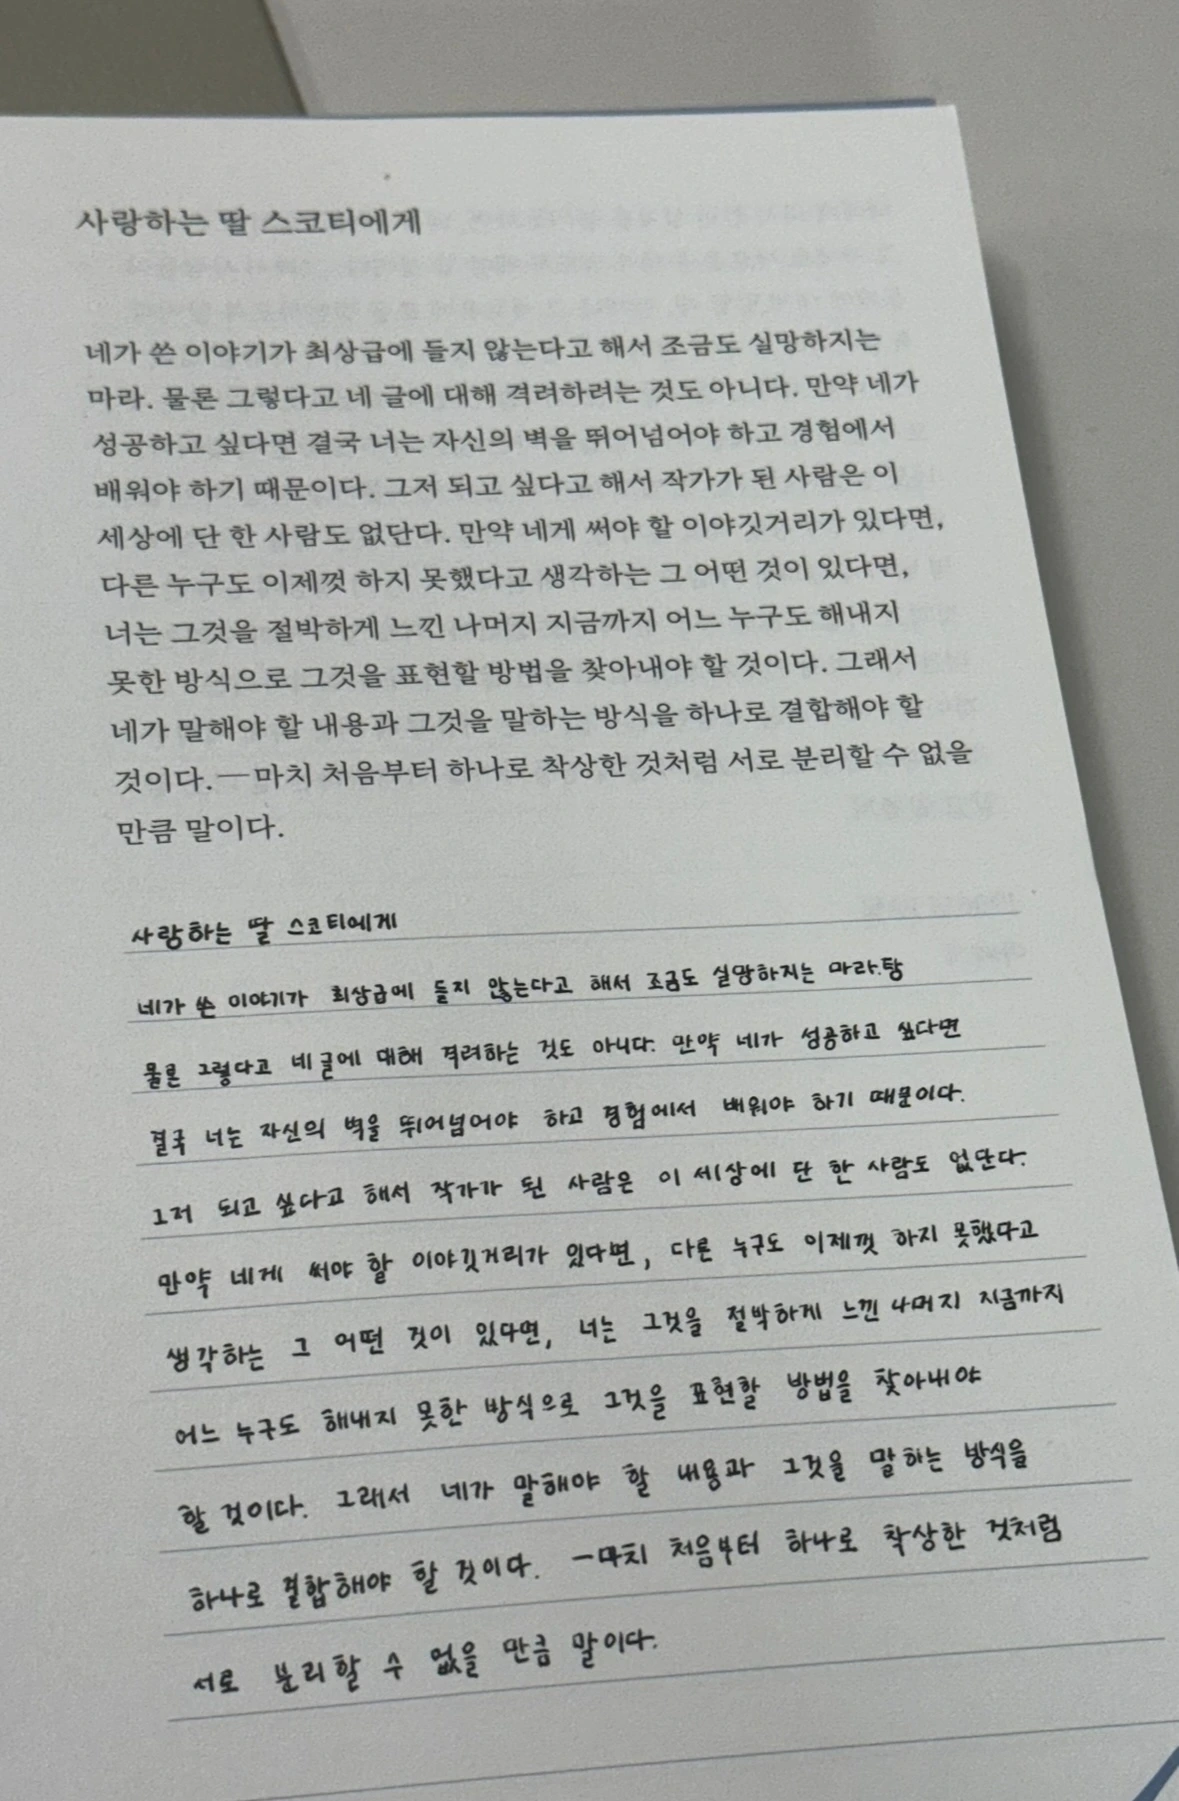 사랑하는 딸 스코티에게
네가 쓴 이야기가 최상급에 들지 않는다고 해서 조금도 실망하지는
마라. 물론 그렇다고 네 글에 대해 격려하려는 것도 아니다. 만약 네가
성공하고 싶다면 결국 너는 자신의 벽을 뛰어넘어야 하고 경험에서
배워야 하기 때문이다. 그저 되고 싶다고 해서 작가가 된 사람은 이
세상에 단 한 사람도 없단다. 만약 네게 써야 할 이야깃거리가 있다면,
다른 누구도 이제껏 하지 못했다고 생각하는 그 어떤 것이 있다면,
너는 그것을 절박하게 느낀 나머지 지금까지 어느 누구도 해내지
못한 방식으로 그것을 표현할 방법을 찾아내야 할 것이다. 그래서
네가 말해야 할 내용과 그것을 말하는 방식을 하나로 결합해야 할
것이다. ─ 마치 처음부터 하나로 착상한 것처럼 서로 분리할 수 없을
만큼 말이다.
사랑하는 딸 스코티에게
네가 쓴 이야기가 최상급에 들지 않는다고 해서 조금도 실망하지는 마라.탕
물론 그렇다고 네 글에 대해 격려하는 것도 아니다. 만약 네가 성공하고 싶다면
결국 너는 자신의 벽을 뛰어넘어야 하고 경험에서 배워야 하기 때문이다.
그저 되고 싶다고 해서 작가가 된 사람은 이 세상에 단 한 사람도 없단다.
만약 네게 써야 할 이야깃거리가 있다면, 다른 누구도 이제껏 하지 못했다고
생각하는 그 어떤 것이 있다면, 너는 그것을 절박하게 느낀 나머지 지금까지
어느 누구도 해내지 못한 방식으로 그것을 표현할 방법을 찾아내야
할 것이다. 그래서 네가 말해야 할 내용과 그것을 말하는 방식을
하나로 결합해야 할 것이다. ─마치 처음부터 하나로 착상한 것처럼
서로 분리할 수 없을 만큼 말이다.